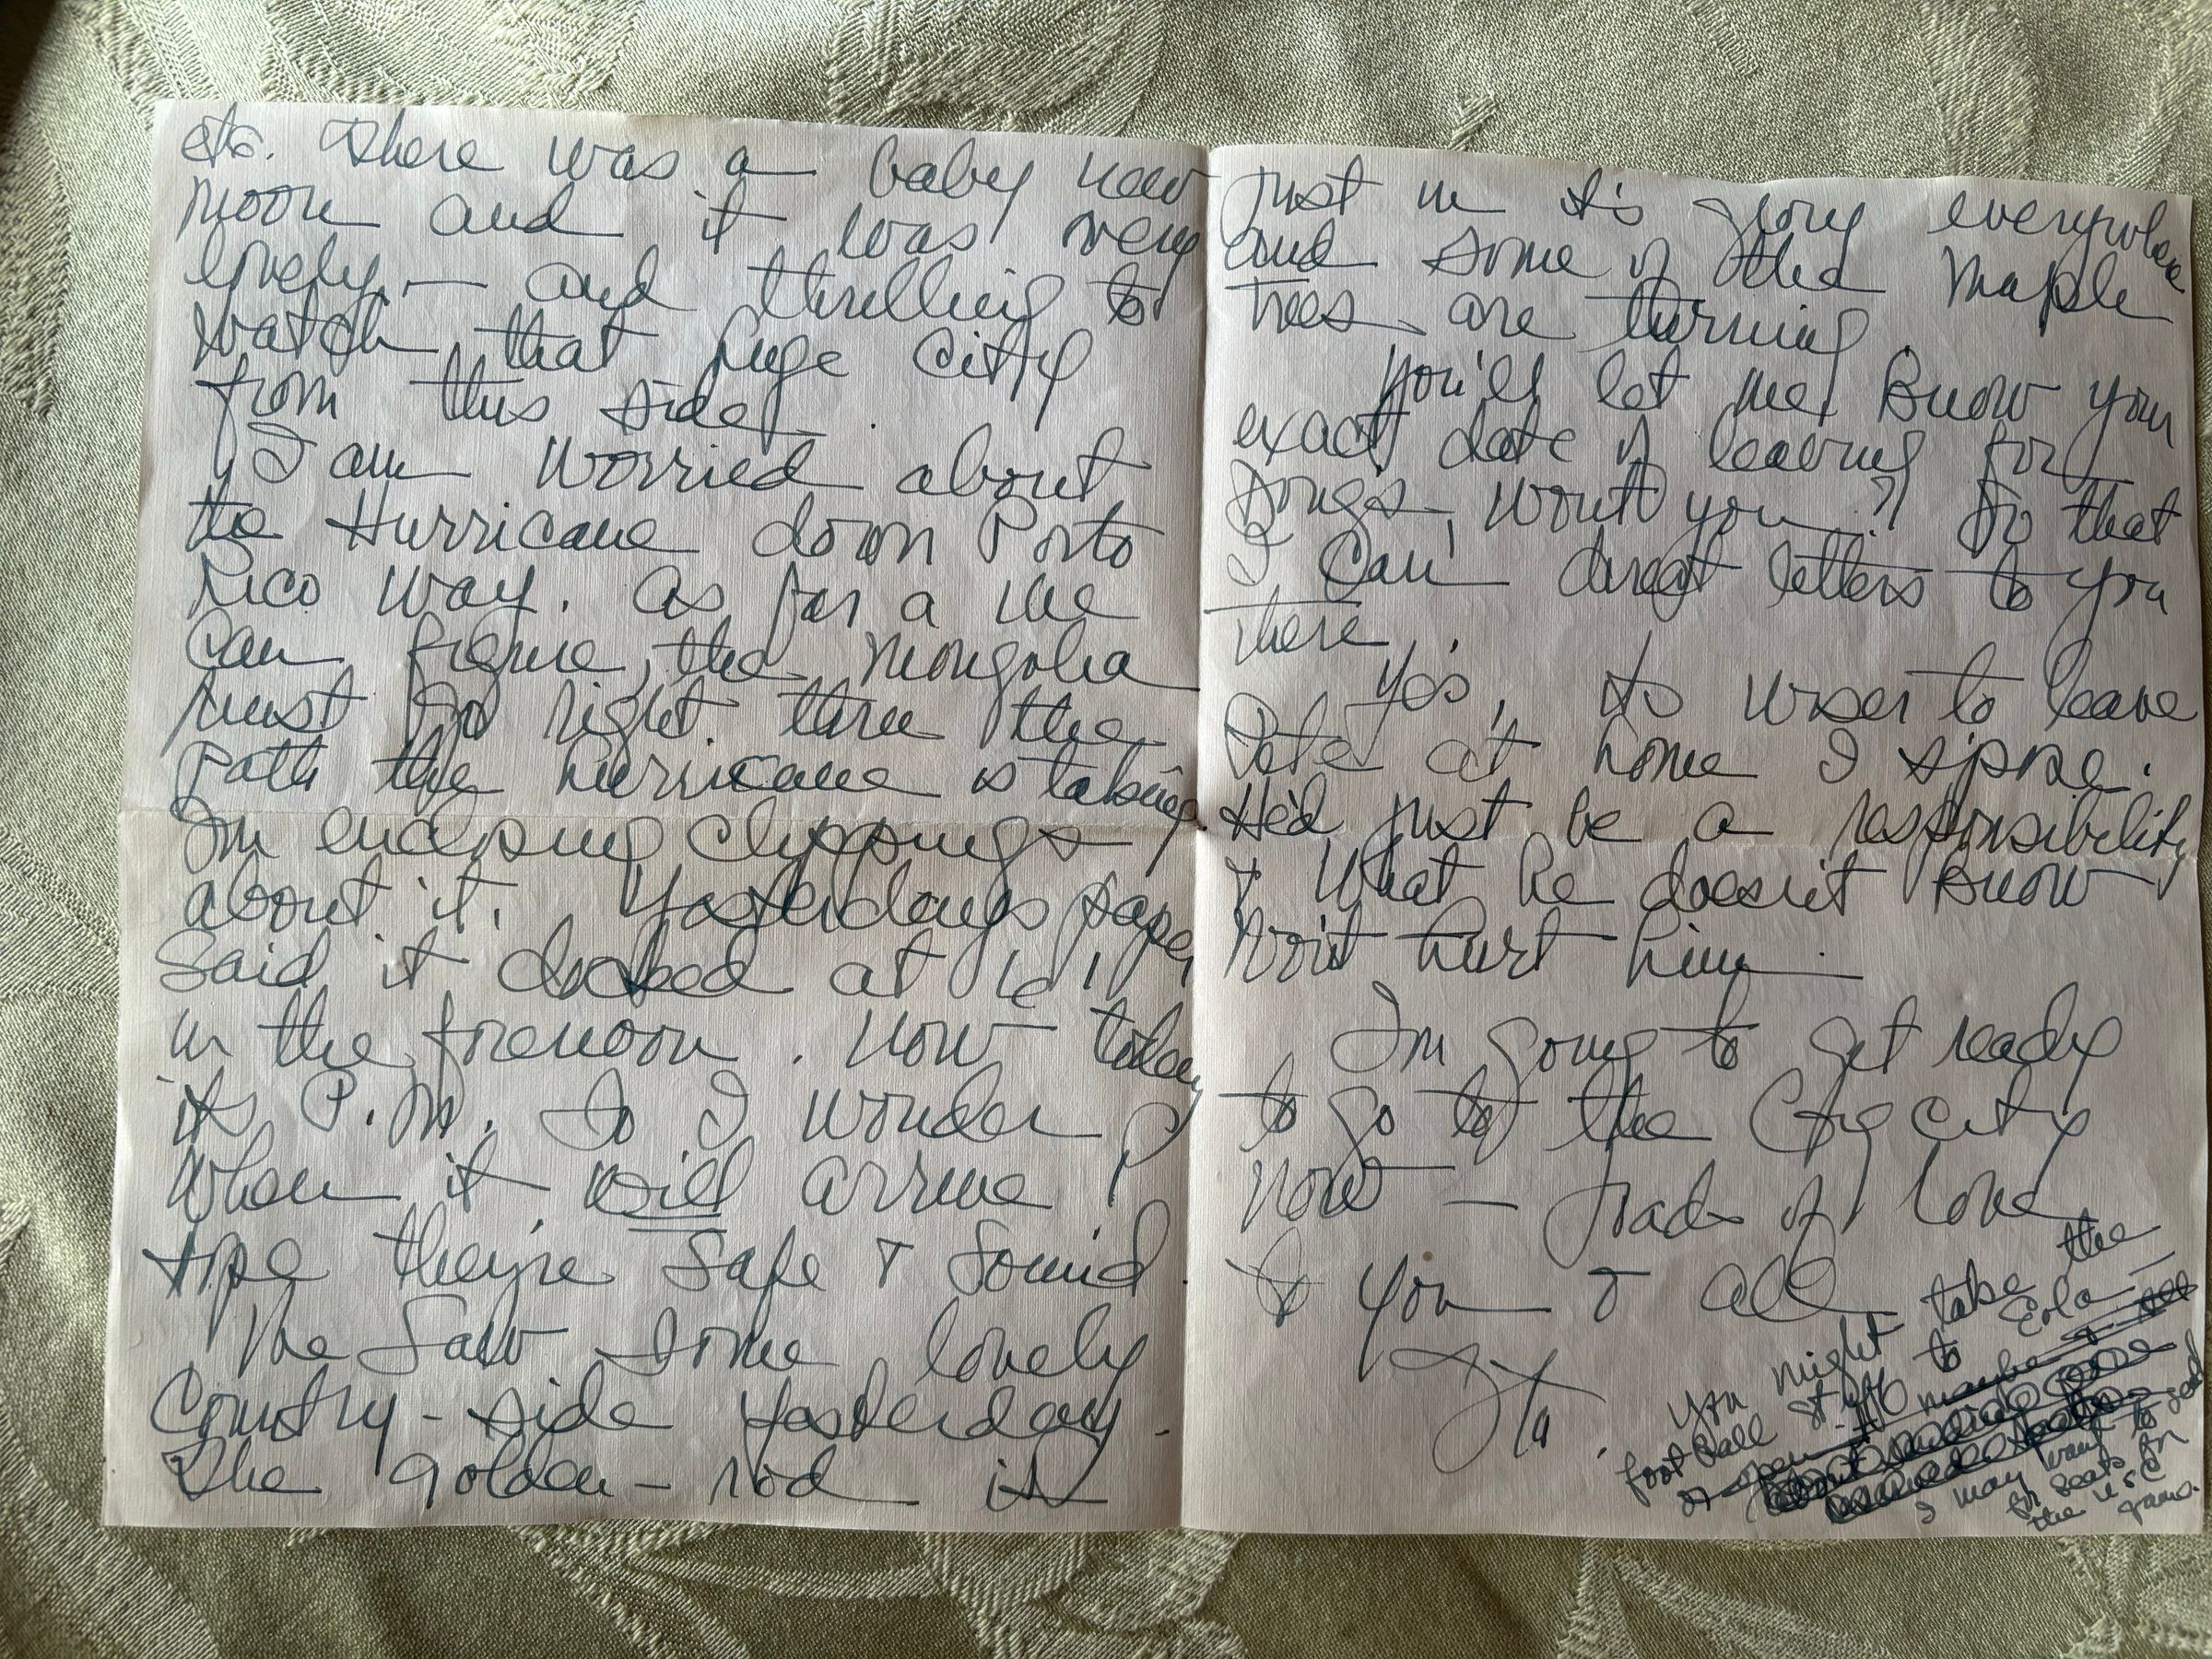 etc. There was a baby new
moon and it was very
lovely, — and thrilling to
watch that huge City
from this side.
I am worried about
the Hurricane down Porto
Rico way. as far a we
can figure, the Mongolia
must go right thru the
path the hurricane is taking.
Im enclosing clippings
about it. Yesterdays paper
said it docked at
in the forenoon. Now today
its P.M. So I wonder
when it will arrive!
Hope they're safe & sound.
We saw some lovely
Country-side yesterday.
The golden-rod is
just in it's glory everywhere
and some of the maple
trees are turning.
You'll let me know your
exact date of leaving for
won't you? So that
I can direct letters to you
there.
Yes, its wiser to leave
Pete at home I spose.
He'd just be a responsibility
& what he doesn't know
won't hurt him.
Im going to get ready
to go to the City
now — loads of love
to you & all
You might take the
football stuff to Eola
or open it maybe & see
I may want to send
for seats for
the U.S.C.
game.